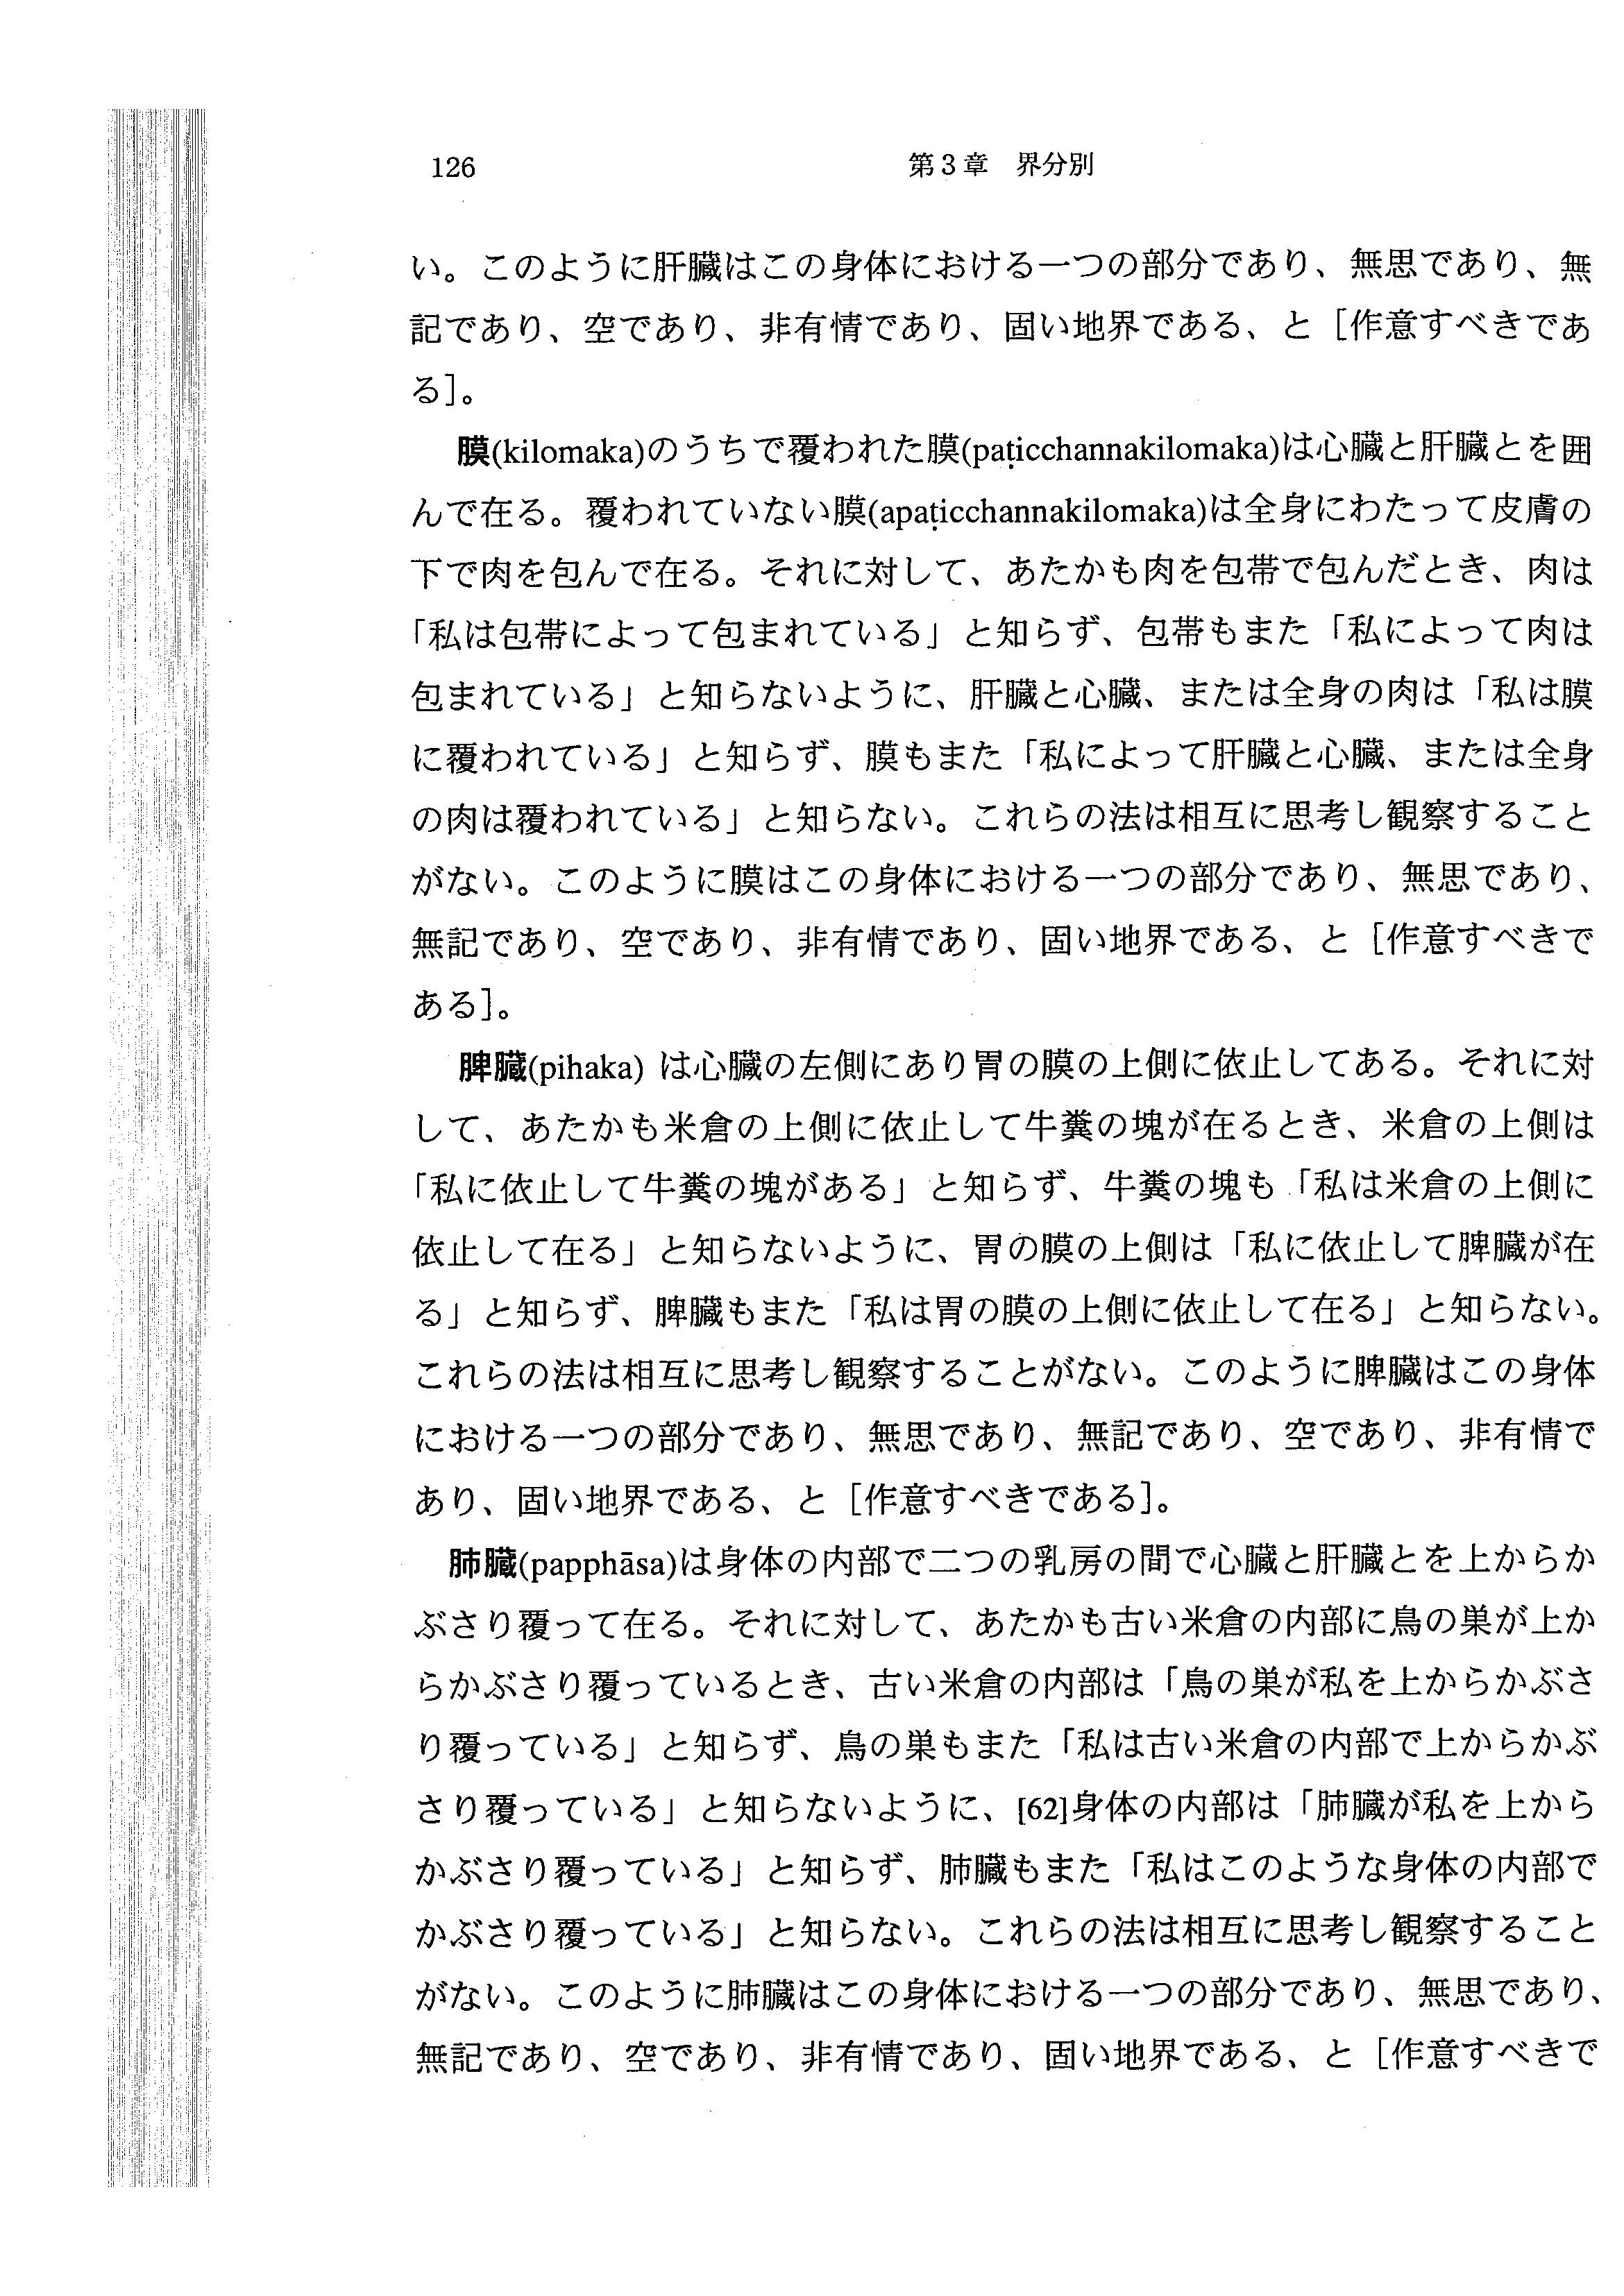 126
第3章　界分別
い。このように肝臓はこの身体における一つの部分であり、無思であり、無
記であり、空であり、非有情であり、固い地界である、と［作意すべきであ
る］。
膜(kilomaka)のうちで覆われた膜(paṭicchannakilomaka)は心臓と肝臓とを囲
んで在る。覆われていない膜(apaṭicchannakilomaka)は全身にわたって皮膚の
下で肉を包んで在る。それに対して、あたかも肉を包帯で包んだとき、肉は
「私は包帯によって包まれている」と知らず、包帯もまた「私によって肉は
包まれている」と知らないように、肝臓と心臓、または全身の肉は「私は膜
に覆われている」と知らず、膜もまた「私によって肝臓と心臓、または全身
の肉は覆われている」と知らない。これらの法は相互に思考し観察すること
がない。このように膜はこの身体における一つの部分であり、無思であり、
無記であり、空であり、非有情であり、固い地界である、と［作意すべきで
ある］。
脾臓(pihaka) は心臓の左側にあり胃の膜の上側に依止してある。それに対
して、あたかも米倉の上側に依止して牛糞の塊が在るとき、米倉の上側は
「私に依止して牛糞の塊がある」と知らず、牛糞の塊も「私は米倉の上側に
依止して在る」と知らないように、胃の膜の上側は「私に依止して脾臓が在
る」と知らず、脾臓もまた「私は胃の膜の上側に依止して在る」と知らない。
これらの法は相互に思考し観察することがない。このように脾臓はこの身体
における一つの部分であり、無思であり、無記であり、空であり、非有情で
あり、固い地界である、と［作意すべきである］。
肺臓(papphāsa)は身体の内部で二つの乳房の間で心臓と肝臓とを上からか
ぶさり覆って在る。それに対して、あたかも古い米倉の内部に鳥の巣が上か
らかぶさり覆っているとき、古い米倉の内部は「鳥の巣が私を上からかぶさ
り覆っている」と知らず、鳥の巣もまた「私は古い米倉の内部で上からかぶ
さり覆っている」と知らないように、[62]身体の内部は「肺臓が私を上から
かぶさり覆っている」と知らず、肺臓もまた「私はこのような身体の内部で
かぶさり覆っている」と知らない。これらの法は相互に思考し観察すること
がない。このように肺臓はこの身体における一つの部分であり、無思であり、
無記であり、空であり、非有情であり、固い地界である、と［作意すべきで